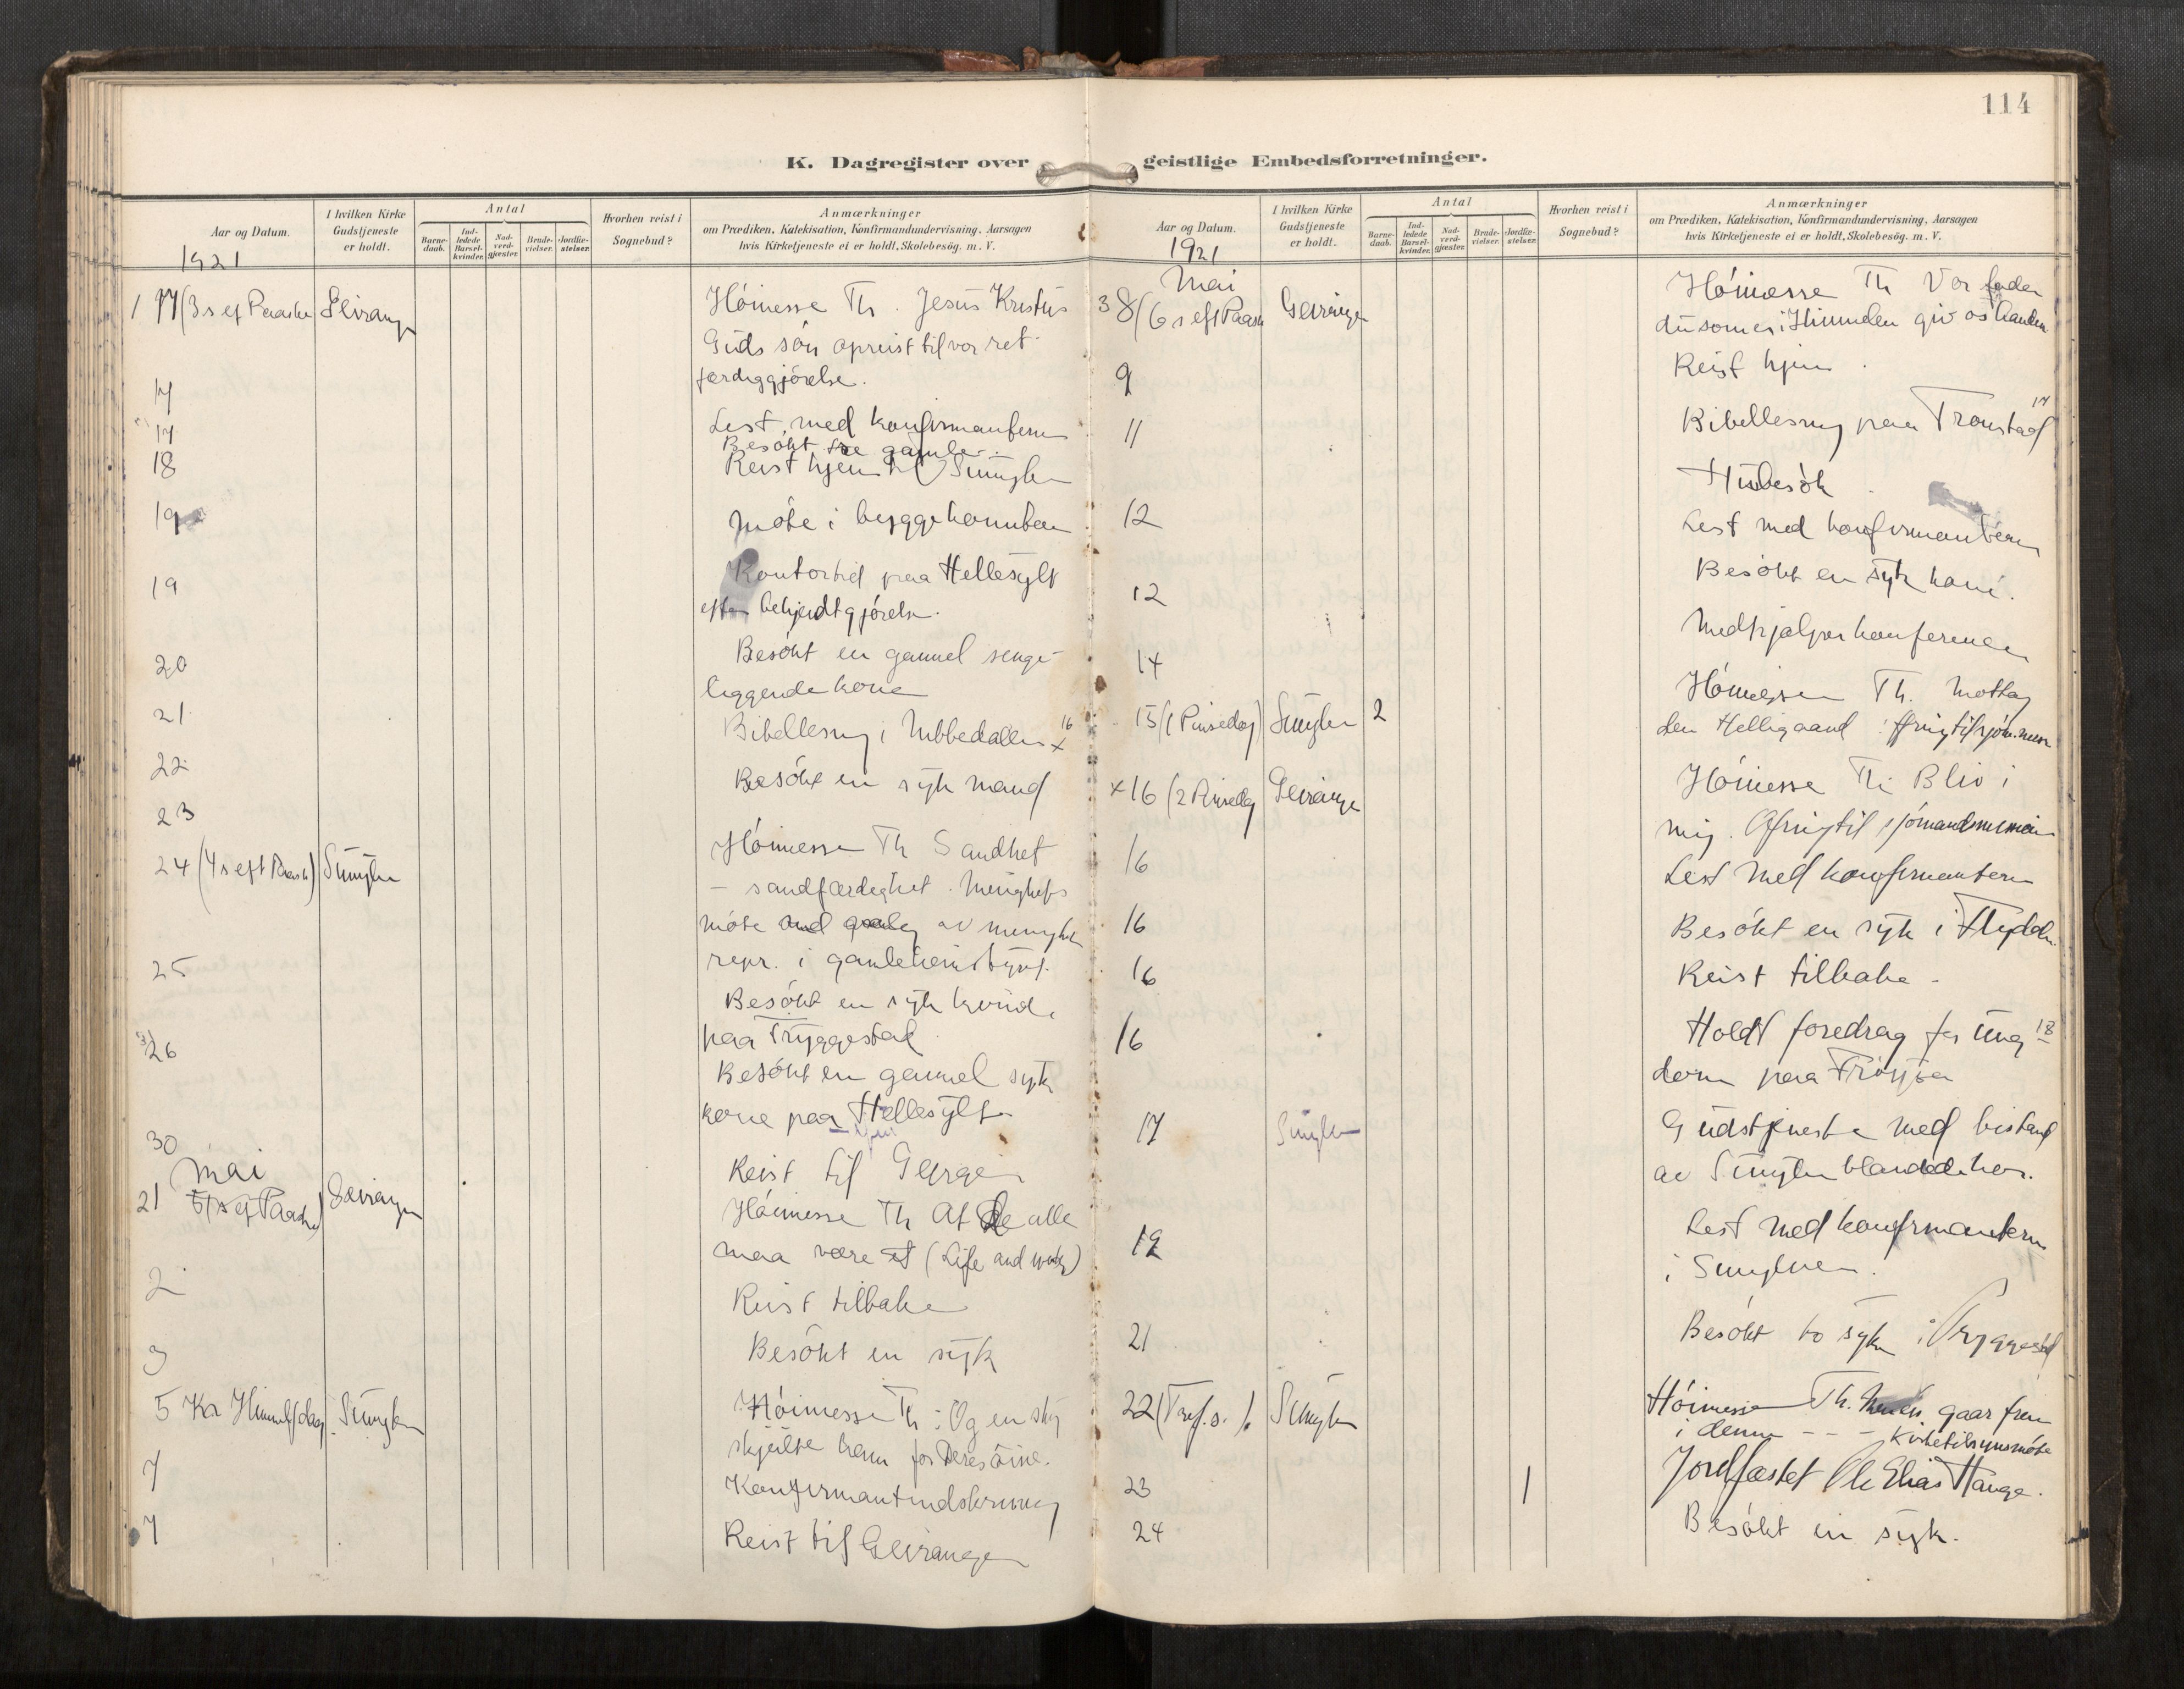 114
K. Dagregister over geistlige Embedsforretninger.
Aar og Datum.
I hvilken Kirke Gudstjeneste er holdt.
Antal
Barne-daab.
Ind-ledede Barsel-kvinder.
Nad-verd-gjæster.
Brude-vielser.
Jordfæ-stelser.
Hvorhen reist i Sognebud?
Anmærkninger
om Prædiken, Katekisation, Konfirmandundervisning, Aarsagen
hvis Kirketjeneste ei er holdt, Skolebesög. m. V.
1921
1 17 (3 s ef Paaske) Geiranger Höimesse Th. Jesus Kristus
Guds sön opreist til vor ret-
færdiggjörelse.
17 Lest med konfirmanterne
17 Besökt tre gamle
18 Reist hjem til Sunylven
19 Möte i byggekomiteen
19 Kontortid paa Hellesylt
efter bekjendtgjörelse.
20 Besökt en gammel senge-
liggende kone
21 Bibellesning i Nibbedalen 16
22 Besökt en syk mand
23
24 (4 s eft Paaske) Sunylven Höimesse Th Sandhet
– sandfærdighet. Menighets
möte av menigheten
repr. i gamleheimstyret.
25 Besökt en syk kvinde
paa Tryggestad
26 Besökt en gammel syk
kone paa Hellesylt
30 Reist til Geiranger
Mai
21 Geiranger Höimesse Th At De alle
maa være et (Life and work)
2 Reist tilbake
3 Besökt en syk
5 Kr Himmelf.dag Sunylven Höimesse Th: Og en sky
skjulte ham for Deres öine.
7 Konfirmantindskrivning
7 Reist til Geiranger
Aar og Datum.
I hvilken Kirke Gudstjeneste er holdt.
Antal
Barne-daab.
Ind-ledede Barsel-kvinder.
Nad-verd-gjæster.
Brude-vielser.
Jordfæ-stelser.
Hvorhen reist i Sognebud?
Anmærkninger
om Prædiken, Katekisation, Konfirmandundervisning, Aarsagen
hvis Kirketjeneste ei er holdt, Skolebesög. m. V.
1921
Mai
3 8 (6 s eft Paask Geiranger Höimesse Th Vor fader
du som er i Himmelen giv os
9 Reist hjem.
11 Bibellesning paa Tronstad 17
Husbesök
12 Lest med konfirmanterne
Besökt en syk kone.
12 Medhjælperkonferense
14
15 (1 Pinsedag) Sunylven 2 Höimesse Th. Motta
den Helligaand
x 16 (2 Pinsedag Geiranger Höimesse Th Bliv i
mig. Ofring til sjömandsmisionen
16 Lest med konfirmanterne
16 Besökt en syk i
16 Reist tilbake
16 Holdt foredrag for ung 18
dom paa Fröysa
17 Sunylven Gudstjeneste med bistand
av Sunylven blandede kor.
19 Lest med konfirmanterne
i Sunylven.
21 Besökt to syke i Tryggestad
22 (Tref. s.) Sunylven Höimesse Th. gaar frem
i denne - - - Kirketilsynsmöte
23 1 Jordfæstet Ole Elias Hauge.
24 Besökt en syk.